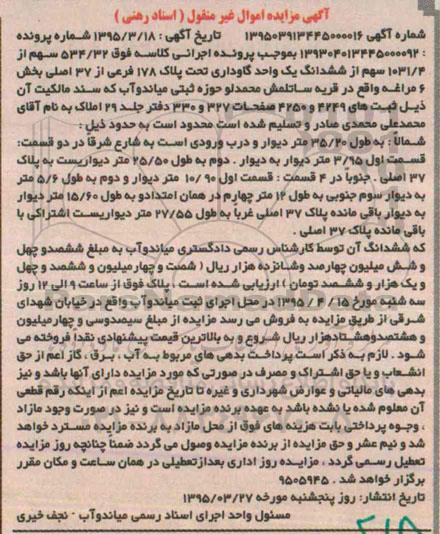 آگهی مزایده اموال غیر منقول ( اسناد رهنی )
شماره آگهی ۱۳۹۵۰۳۹۱۳۴۴۵۰۰۰۰۱۶ تاریخ آگهی : ۱۳۹۵/۳/۱۸ شماره پرونده
: ۱۳۹۳۰۴۰۱۳۴۴۵۰۰۰۰۹۲ بموجب پرونده اجرائی کلاسه فوق ۵۳۴/۳۲ سهم از
۱۰۳۱/۴ سهم از ششدانگ یک واحد گاوداری تحت پلاک ۱۷۸ فرعی از ۳۷ اصلی بخش
۶ مراغه واقع در قریه ساتلمش محمدلو حوزه ثبتی میاندوآب که سند مالکیت آن
ذیل ثبت های ۴۲۴۹ و ۴۲۵۰ صفحات ۳۲۷ و ۳۳۰ دفتر جلد ۲۹ املاک به نام آقای
محمدعلی محمدی صادر و تسلیم شده است محدود است به حدود ذیل :
شمالا : به طول ۳۵/۲۰ متر دیوار و درب ورودی است به شارع شرقاً در دو قسمت:
قسمت اول ۳/۹۵ متر دیوار به دیوار . دوم به طول ۲۵/۵۰ متر دیواریست به پلاک
۳۷ اصلی . جنوباً در ۴ قسمت : قسمت اول ۱۰/۹۰ متر دیوار و دوم به طول ۵/۶ متر
به دیوار سوم جنوبی به طول ۱۲ متر چهارم در همان امتدادو به طول ۱۵/۶۰ متر دیوار
به دیوار باقی مانده پلاک ۳۷ اصلی غرباً به طول ۲۷/۵۵ متر دیواریست اشتراکی با
باقی مانده پلاک ۳۷ اصلی .
که ششدانگ آن توسط کارشناس رسمی دادگستری میاندوآب به مبلغ ششصدو چهل
و شش میلیون چهارصد وشانزده هزار ریال ( شصت و چهارمیلیون و ششصد و چهل
و یک هزار و ششصد تومان ) ارزیابی شده است . پلاک فوق از ساعت ۹ الی ۱۲ روز
سه شنبه مورخ ۱۵ / ۴ / ۱۳۹۵ در محل اجرای ثبت میاندوآب واقع در خیابان شهدای
شرقی از طریق مزایده به فروش می رسد مزایده از مبلغ سیصدوسی و چهارمیلیون
و هشتصدوهشتادهزار ریال شروع و به بالاترین قیمت پیشنهادی نقداً فروخته می
شود . لازم به ذکر است پرداخت بدهی های مربوط به آب ، برق ، گاز اعم از حق
انشعاب و یا حق اشتراک و مصرف در صورتی که مورد مزایده دارای آنها باشد و نیز
بدهی های مالیاتی و عوارض شهرداری و غیره تا تاریخ مزایده اعم از اینکه رقم قطعی
آن معلوم شده یا نشده باشد به عهده برنده مزایده است و نیز در صورت وجود مازاد
، وجوه پرداختی بابت هزینه های فوق از محل مازاد به برنده مزایده مسترد خواهد
شد و نیم عشر و حق مزایده از برنده مزایده وصول می گردد ضمناً چنانچه روز مزایده
تعطیل رسمی گردد ، مزایده روز اداری بعدازتعطیلی در همان ساعت و مکان مقرر
برگزار خواهد شد . ۹۵۰۵۹۴۵
تاریخ انتشار: روز پنجشنبه مورخه ۱۳۹۵/۰۳/۲۷
مسئول واحد اجرای اسناد رسمی میاندوآب - نجف خیری